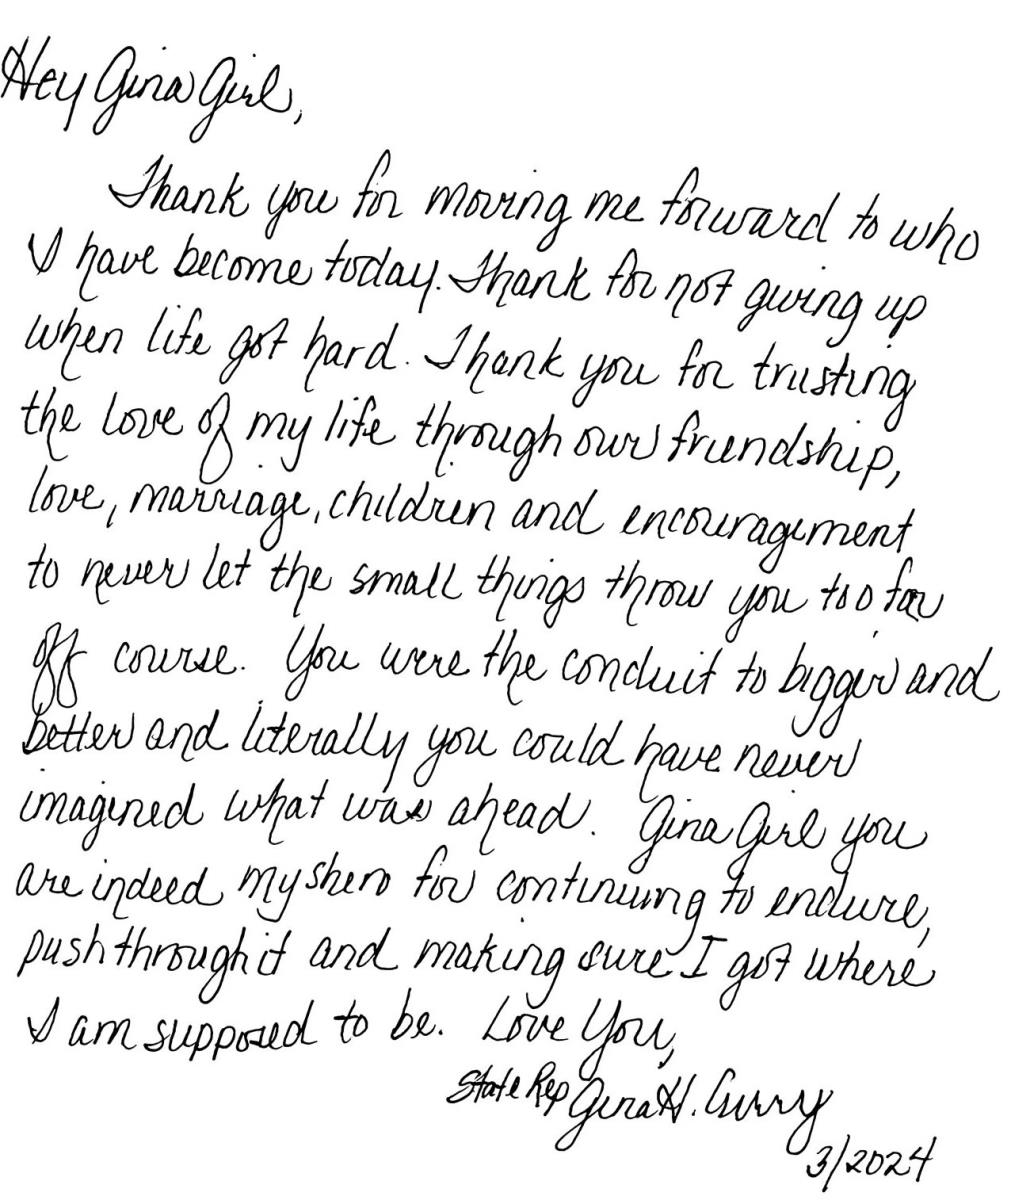 Hey Gina Girl,
Thank you for moving me forward to who
I have become today. Thank for not giving up
when life got hard. Thank you for trusting
the love of my life through our friendship,
love, marriage, children and encouragement
to never let the small things throw you too far
off course. You were the conduit to bigger and
better and literally you could have never
imagined what was ahead. Gina Girl you
are indeed my shero for continuing to endure,
push through it and making sure I got where
I am supposed to be. Love You,
State Rep Gina H. Curry
3/2024